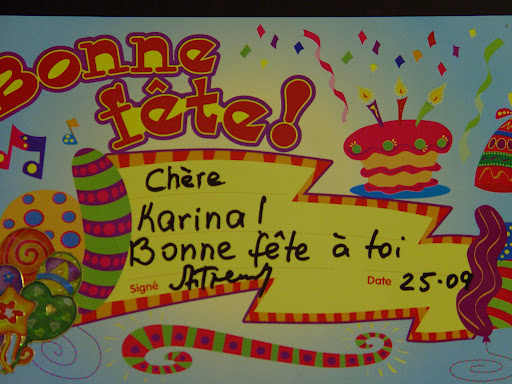 Bonne
fête!
Chère
Karina!
Bonne fête à toi
Signé
Date 25.09